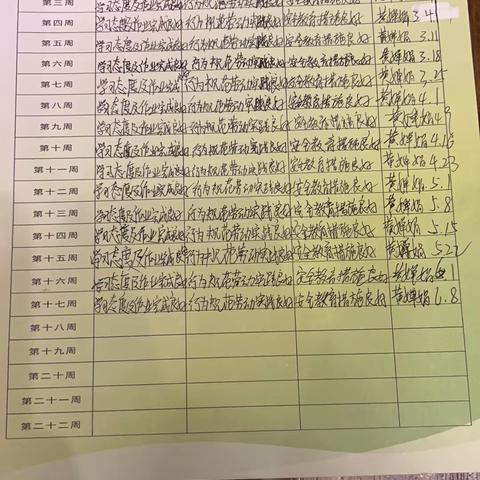 第三周 学习态度及作业完成良好 行为规范劳动实践良好 安全教育措施良好
第四周 学习态度及作业完成良好 行为规范劳动实践良好 安全教育措施良好 黄婵娟 3.4
第五周 学习态度及作业完成良好 行为规范劳动实践良好 安全教育措施良好 黄婵娟 3.11
第六周 学习态度及作业完成良好 行为规范劳动实践良好 安全教育措施良好 黄婵娟 3.18
第七周 学习态度及作业完成良好 行为规范劳动实践良好 安全教育措施良好 黄婵娟 3.25
第八周 学习态度及作业完成良好 行为规范劳动实践良好 安全教育措施良好 黄婵娟 4.1
第九周 学习态度及作业完成良好 行为规范劳动实践良好 安全教育措施良好 黄婵娟 4.9
第十周 学习态度及作业完成良好 行为规范劳动实践良好 安全教育措施良好 黄婵娟 4.16
第十一周 学习态度及作业完成良好 行为规范劳动实践良好 安全教育措施良好 黄婵娟 4.23
第十二周 学习态度及作业完成良好 行为规范劳动实践良好 安全教育措施良好 黄婵娟 5.1
第十三周 学习态度及作业完成良好 行为规范劳动实践良好 安全教育措施良好 黄婵娟 5.8
第十四周 学习态度及作业完成良好 行为规范劳动实践良好 安全教育措施良好 黄婵娟 5.15
第十五周 学习态度及作业完成良好 行为规范劳动实践良好 安全教育措施良好 黄婵娟 5.22
第十六周 学习态度及作业完成良好 行为规范劳动实践良好 安全教育措施良好 黄婵娟
第十七周 学习态度及作业完成良好 行为规范劳动实践良好 安全教育措施良好 黄婵娟 6.8
第十八周
第十九周
第二十周
第二十一周
第二十二周